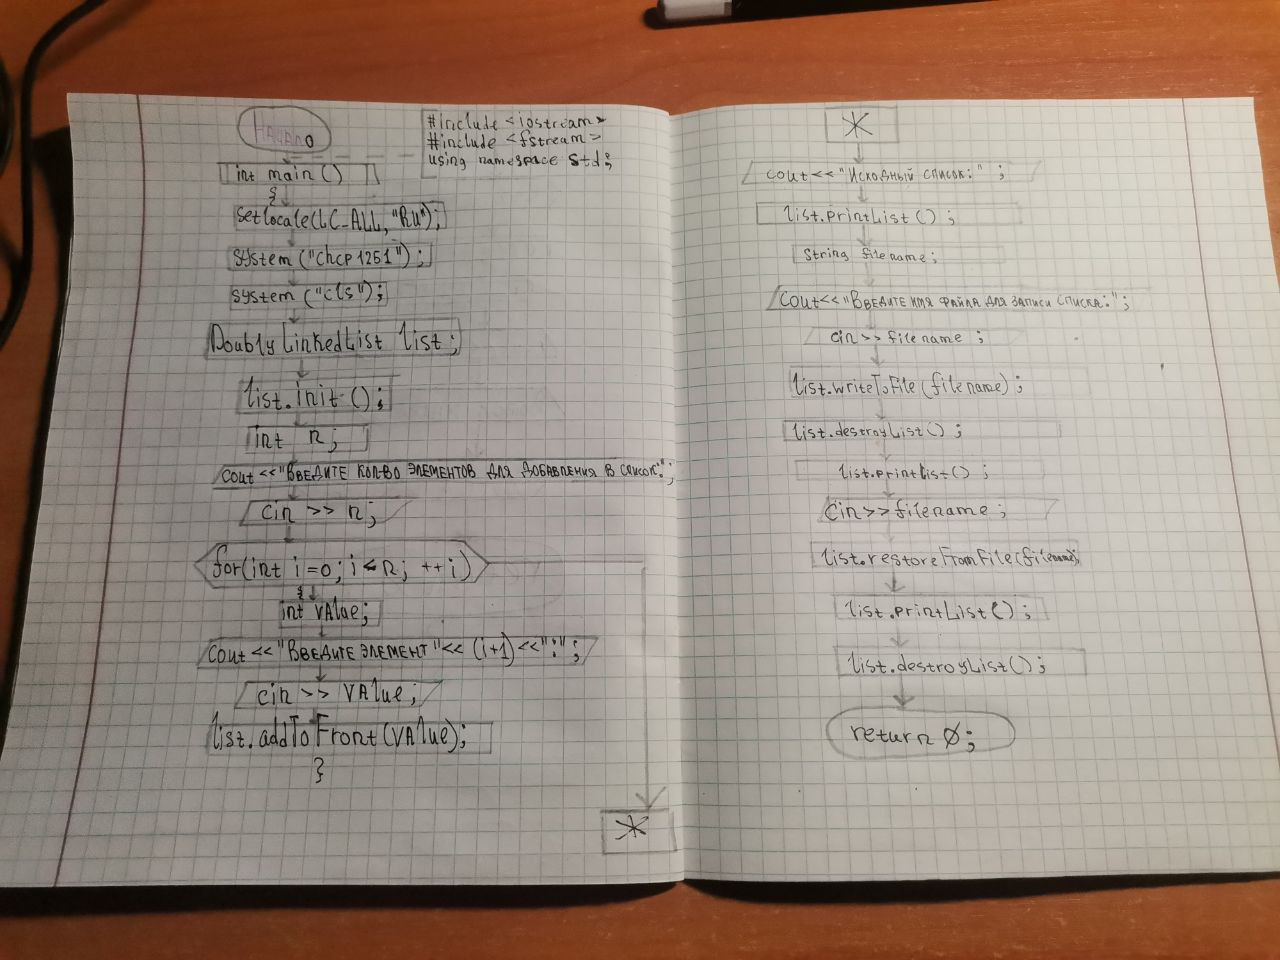 Начало
#include <iostream>
#include <fstream>
using namespace std;
int main()
{
setlocale(LC_ALL, "Ru");
system("chcp 1251");
system("cls");
DoublyLinkedList list;
list.init();
int n;
cout<<"Введите кол-во элементов для добавления в список:";
cin >> n;
for(int i=0; i<n; ++i)
{
int value;
cout<<"Введите элемент"<<(i+1)<<":";
cin >> value;
list.addToFront(value);
}
*
*
cout<<"Исходный список:";
list.printList();
string filename;
cout<<"Введите имя файла для записи списка:";
cin>>filename;
list.writeToFile(filename);
list.destroyList();
list.printList();
cin>>filename;
list.restoreFromFile(filename);
list.printList();
list.destroyList();
return 0;